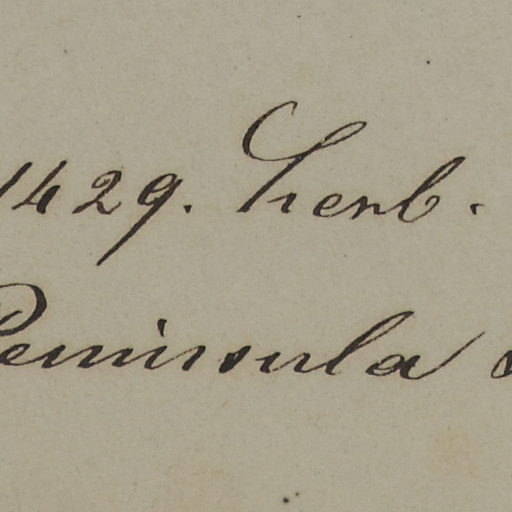 1429. Herb.
Peninsula